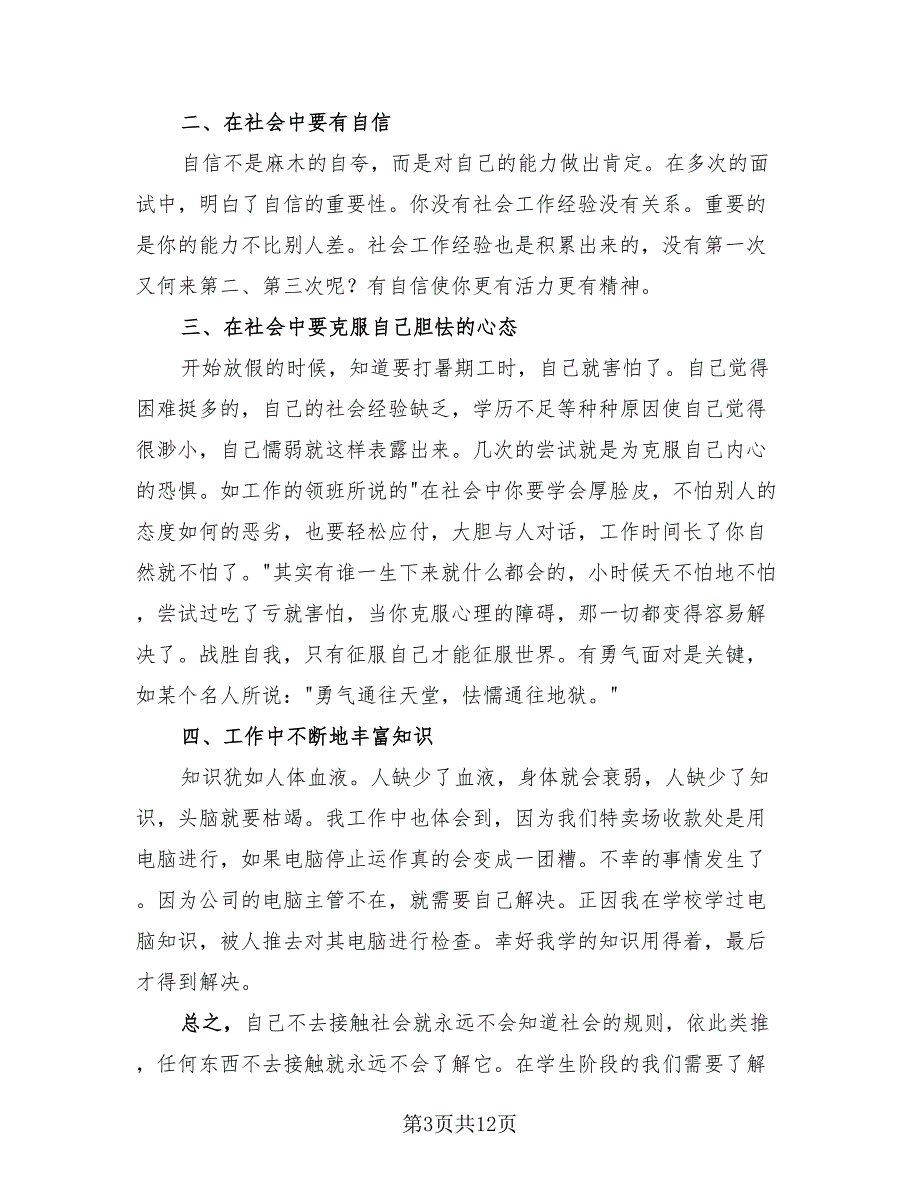 二、在社会中要有自信
自信不是麻木的自夸，而是对自己的能力做出肯定。在多次的面
试中，明白了自信的重要性。你没有社会工作经验没有关系。重要的
是你的能力不比别人差。社会工作经验也是积累出来的，没有第一次
又何来第二、第三次呢？有自信使你更有活力更有精神。
三、在社会中要克服自己胆怯的心态
开始放假的时候，知道要打暑期工时，自己就害怕了。自己觉得
困难挺多的，自己的社会经验缺乏，学历不足等种种原因使自己觉得
很渺小，自己懦弱就这样表露出来。几次的尝试就是为克服自己内心
的恐惧。如工作的领班所说的"在社会中你要学会厚脸皮，不怕别人的
态度如何的恶劣，也要轻松应付，大胆与人对话，工作时间长了你自
然就不怕了。"其实有谁一生下来就什么都会的，小时候天不怕地不怕
，尝试过吃了亏就害怕，当你克服心理的障碍，那一切都变得容易解
决了。战胜自我，只有征服自己才能征服世界。有勇气面对是关键，
如某个名人所说："勇气通往天堂，怯懦通往地狱。"
四、工作中不断地丰富知识
知识犹如人体血液。人缺少了血液，身体就会衰弱，人缺少了知
识，头脑就要枯竭。我工作中也体会到，因为我们特卖场收款处是用
电脑进行，如果电脑停止运作真的会变成一团糟。不幸的事情发生了
。因为公司的电脑主管不在，就需要自己解决。正因我在学校学过电
脑知识，被人推去对其电脑进行检查。幸好我学的知识用得着，最后
才得到解决。
总之，自己不去接触社会就永远不会知道社会的规则，依此类推
，任何东西不去接触就永远不会了解它。在学生阶段的我们需要了解
第3页共12页